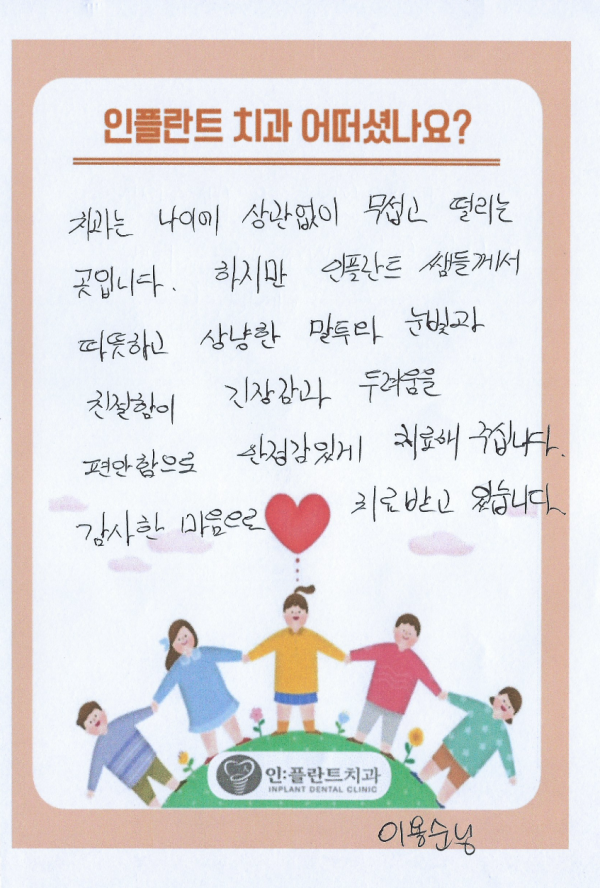 인플란트 치과 어떠셨나요?
치과는 나이에 상관없이 무섭고 떨리는
곳입니다. 하지만 인플란트 쌤들께서
따뜻하고 상냥한 말투와 눈빛과
친절함이 긴장감과 두려움을
편안함으로 안정감있게 치료해 주십니다.
감사한 마음으로 치료받고 있습니다
인:플란트치과
INPLANT DENTAL CLINIC
이용순님